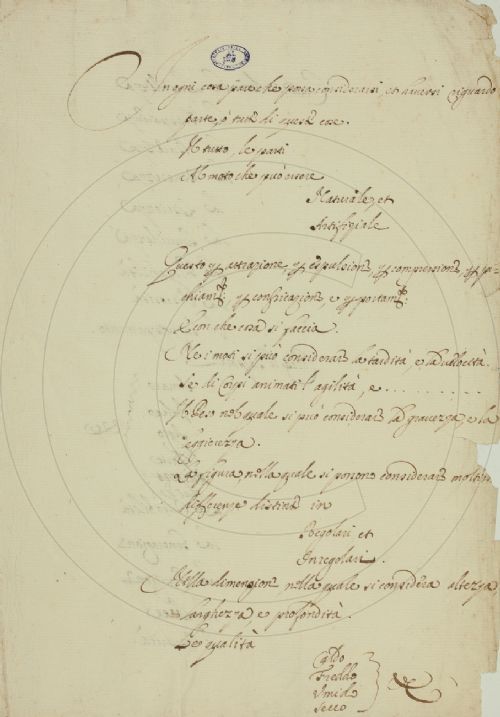 In ogni cosa pare che possa considerarsi, et haversi riguardo
parte, ò tutte di queste cose.
Il tutto, le parti
Il moto che può essere
Naturale, et
Artifiziale
Questo p attrazione, p espulsione, p compressione, p
p e p
E con che cosa si faccia.
Ne i moti si può considerare la tardità, e la velocità.
Se di Corpi animati l'agilità, e ..........
Il Peso nel quale si può considerare la gravezza, e la
leggierezza.
La figura nella quale si possono considerare molte
differenze distinte in
Regolari et
Inregolari.
Alla dimenzione nella quale si considera altezza
larghezza e profondità.
Le qualità
Caldo
Freddo
Umido
Secco